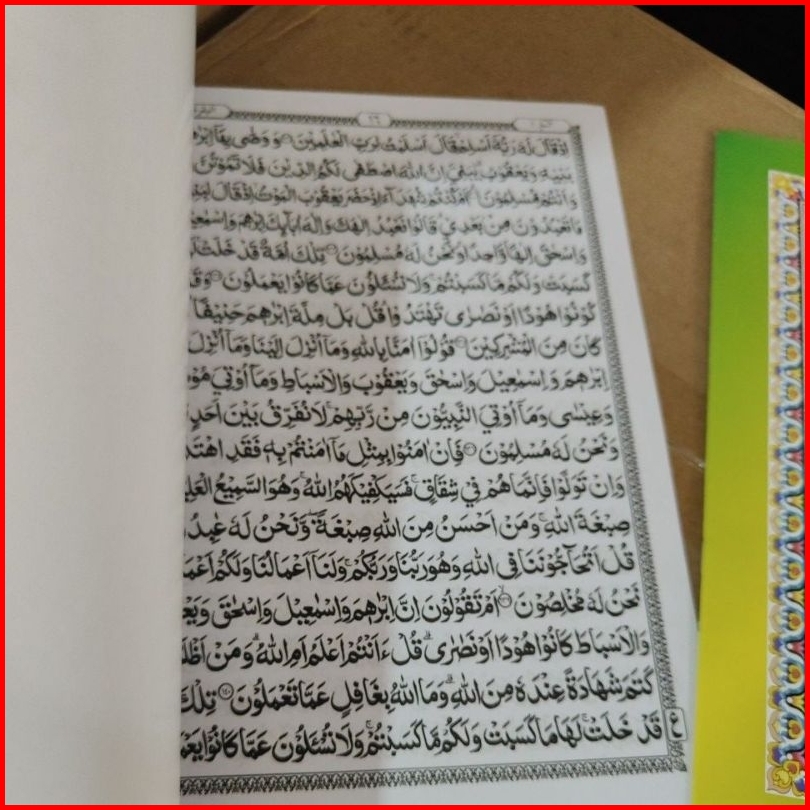 البقرة ٢٦ الم ١
اِذْ قَالَ لَهٗ رَبُّهٗۤ اَسْلِمْ ۙ قَالَ اَسْلَمْتُ لِرَبِّ الْعٰلَمِيْنَ وَ وَصّٰى بِهَاۤ اِبْرٰهٖمُ
بَنِيْهِ وَ يَعْقُوْبُ ؕ يٰبَنِيَّ اِنَّ اللّٰهَ اصْطَفٰى لَكُمُ الدِّيْنَ فَلَا تَمُوْتُنَّ
وَ اَنْتُمْ مُّسْلِمُوْنَ اَمْ كُنْتُمْ شُهَدَآءَ اِذْ حَضَرَ يَعْقُوْبَ الْمَوْتُ ۙ اِذْ قَالَ
مَا تَعْبُدُوْنَ مِنْۢ بَعْدِيْ ؕ قَالُوْا نَعْبُدُ اِلٰهَكَ وَ اِلٰهَ اٰبَآىِٕكَ اِبْرٰهٖمَ وَ اِسْمٰعِيْلَ
وَ اِسْحٰقَ اِلٰهًا وَّاحِدًا ۚ وَّ نَحْنُ لَهٗ مُسْلِمُوْنَ تِلْكَ اُمَّةٌ قَدْ خَلَتْ
كَسَبَتْ وَ لَكُمْ مَّا كَسَبْتُمْ ۚ وَ لَا تُسْـَٔلُوْنَ عَمَّا كَانُوْا يَعْمَلُوْنَ
كُوْنُوْا هُوْدًا اَوْ نَصٰرٰى تَهْتَدُوْا ؕ قُلْ بَلْ مِلَّةَ اِبْرٰهٖمَ حَنِيْفًا
كَانَ مِنَ الْمُشْرِكِيْنَ قُوْلُوْۤا اٰمَنَّا بِاللّٰهِ وَ مَاۤ اُنْزِلَ اِلَيْنَا وَ مَاۤ اُنْزِلَ
اِبْرٰهٖمَ وَ اِسْمٰعِيْلَ وَ اِسْحٰقَ وَ يَعْقُوْبَ وَ الْاَسْبَاطِ وَ مَاۤ اُوْتِيَ
وَ عِيْسٰى وَ مَاۤ اُوْتِيَ النَّبِيُّوْنَ مِنْ رَّبِّهِمْ ۚ لَا نُفَرِّقُ بَيْنَ اَحَدٍ
وَ نَحْنُ لَهٗ مُسْلِمُوْنَ فَاِنْ اٰمَنُوْا بِمِثْلِ مَاۤ اٰمَنْتُمْ بِهٖ فَقَدِ
وَ اِنْ تَوَلَّوْا فَاِنَّمَا هُمْ فِيْ شِقَاقٍ ۚ فَسَيَكْفِيْكَهُمُ اللّٰهُ ۚ وَ هُوَ السَّمِيْعُ
صِبْغَةَ اللّٰهِ ۚ وَ مَنْ اَحْسَنُ مِنَ اللّٰهِ صِبْغَةً ؗ وَّ نَحْنُ لَهٗ
قُلْ اَتُحَآجُّوْنَنَا فِي اللّٰهِ وَ هُوَ رَبُّنَا وَ رَبُّكُمْ ۚ وَ لَنَاۤ اَعْمَالُنَا وَ لَكُمْ
نَحْنُ لَهٗ مُخْلِصُوْنَ اَمْ تَقُوْلُوْنَ اِنَّ اِبْرٰهٖمَ وَ اِسْمٰعِيْلَ وَ اِسْحٰقَ
وَ الْاَسْبَاطَ كَانُوْا هُوْدًا اَوْ نَصٰرٰى ؕ قُلْ ءَاَنْتُمْ اَعْلَمُ اَمِ اللّٰهُ ؕ وَ مَنْ
كَتَمَ شَهَادَةً عِنْدَهٗ مِنَ اللّٰهِ ؕ وَ مَا اللّٰهُ بِغَافِلٍ عَمَّا تَعْمَلُوْنَ تِلْكَ
قَدْ خَلَتْ ۚ لَهَا مَا كَسَبَتْ وَ لَكُمْ مَّا كَسَبْتُمْ ۚ وَ لَا تُسْـَٔلُوْنَ عَمَّا كَانُوْا
ع